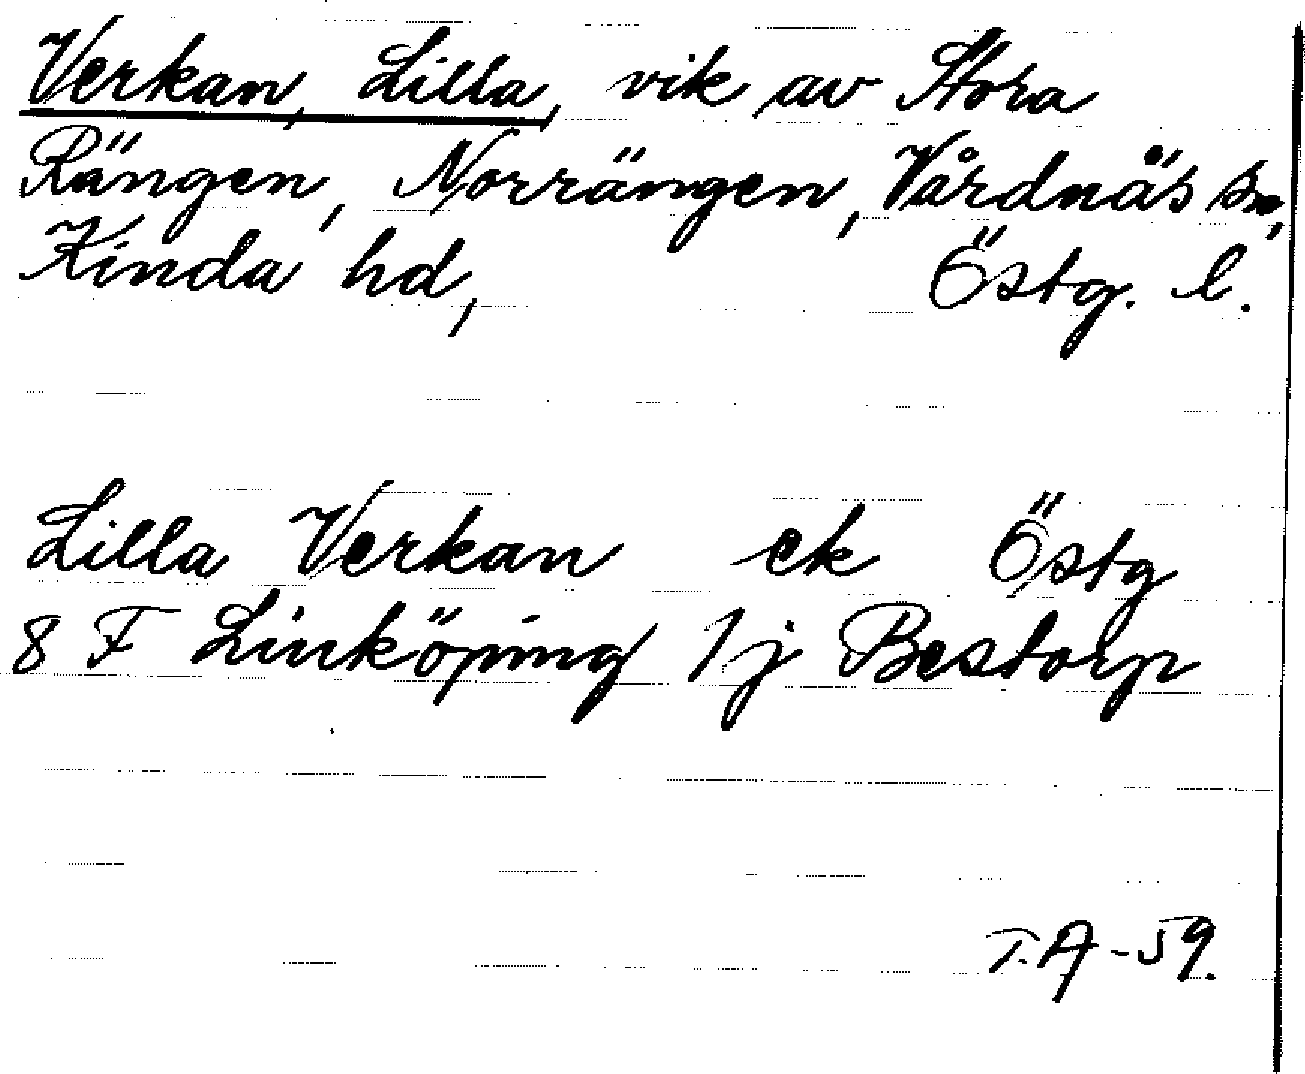 Verkan, Lilla, vik av Stora
Rängen, Norrängen, Vårdnäs sn,
Kinda hd, Östg. l.
Lilla Verkan ek Östg
8 F Linköping 1j Bestorp
T.A-59.